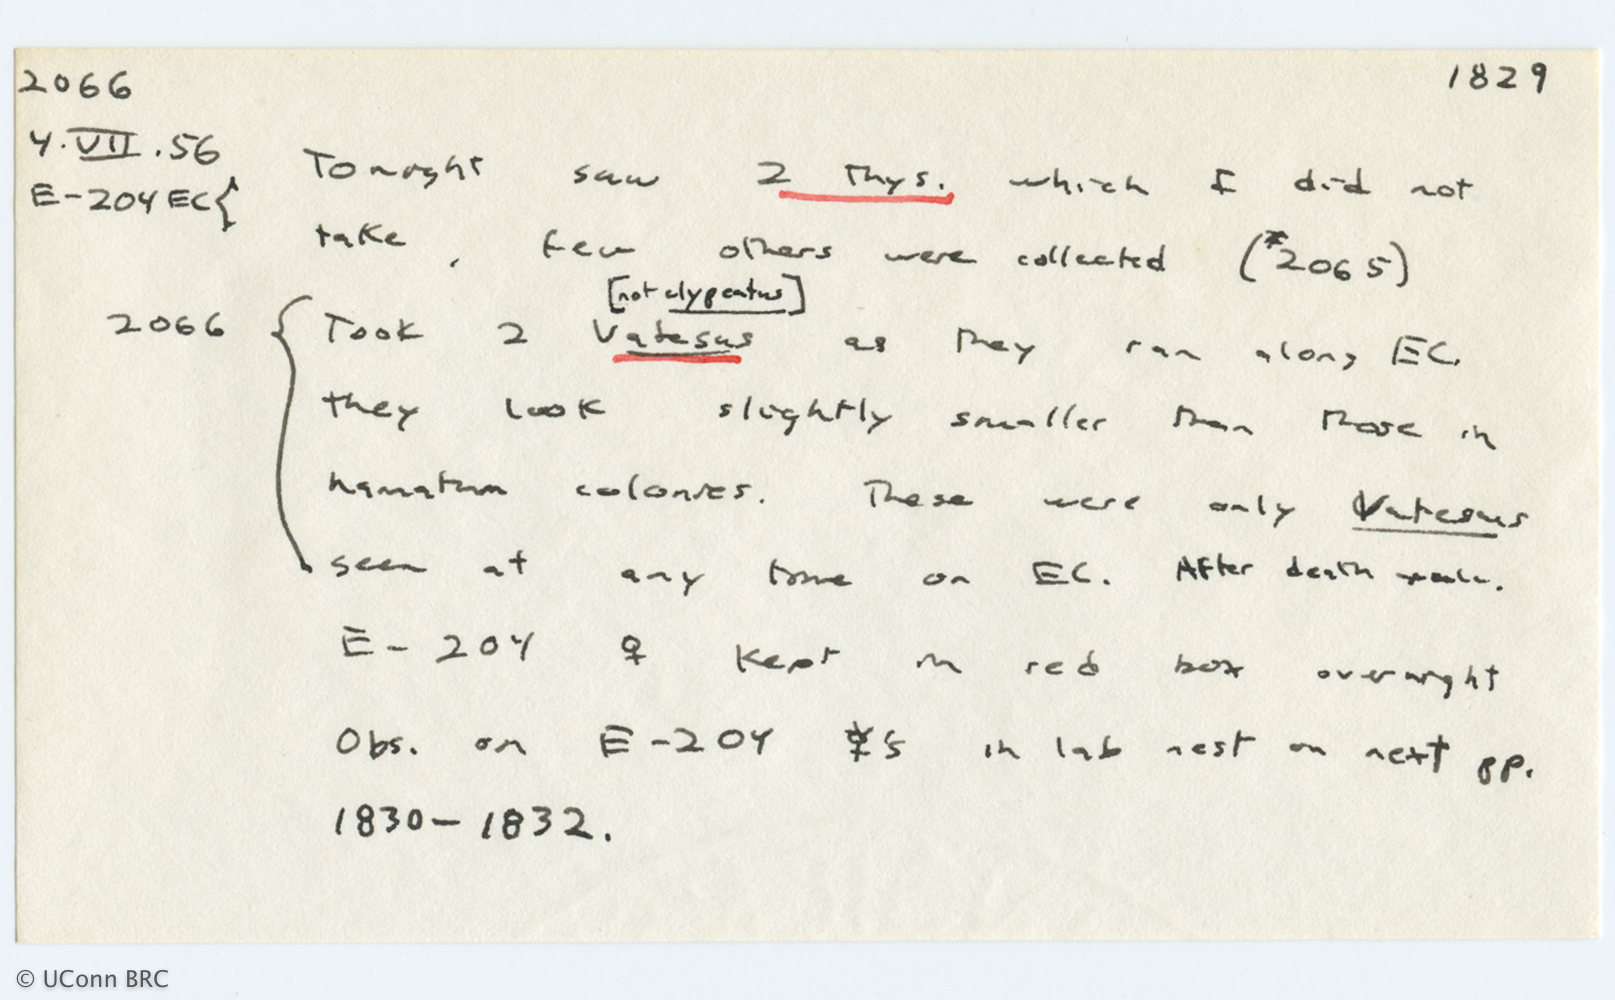 2066
1829
4.VII.56
E-204 EC{
Tonight saw 2 Thys. which I did not
take, few others were collected (#2065)
[not clypeatus]
2066 { Took 2 Vatesus as they ran along EC.
they look slightly smaller than those in
hamatum colonies. These were only Vatesus
seen at any time on EC. After death
E-204 ♀ kept in red box overnight
Obs. on E-204 ☿s in lab nest on next pp.
1830-1832.
© UConn BRC